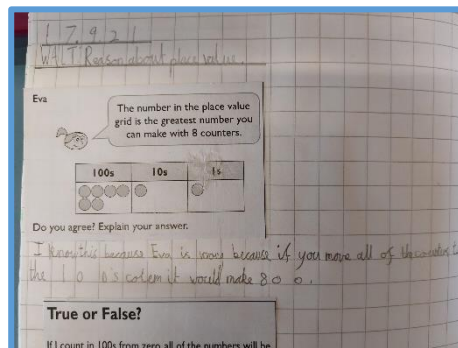 17.9.21
WALT Reason about place value.
Eva
The number in the place value
grid is the greatest number you
can make with 8 counters.
100s 10s 1s
Do you agree? Explain your answer.
I know this because Eva is wrong because if you move all of the counters to
the 100's colem it would make 800.
True or False?
If I count in 100s from zero all of the numbers will be